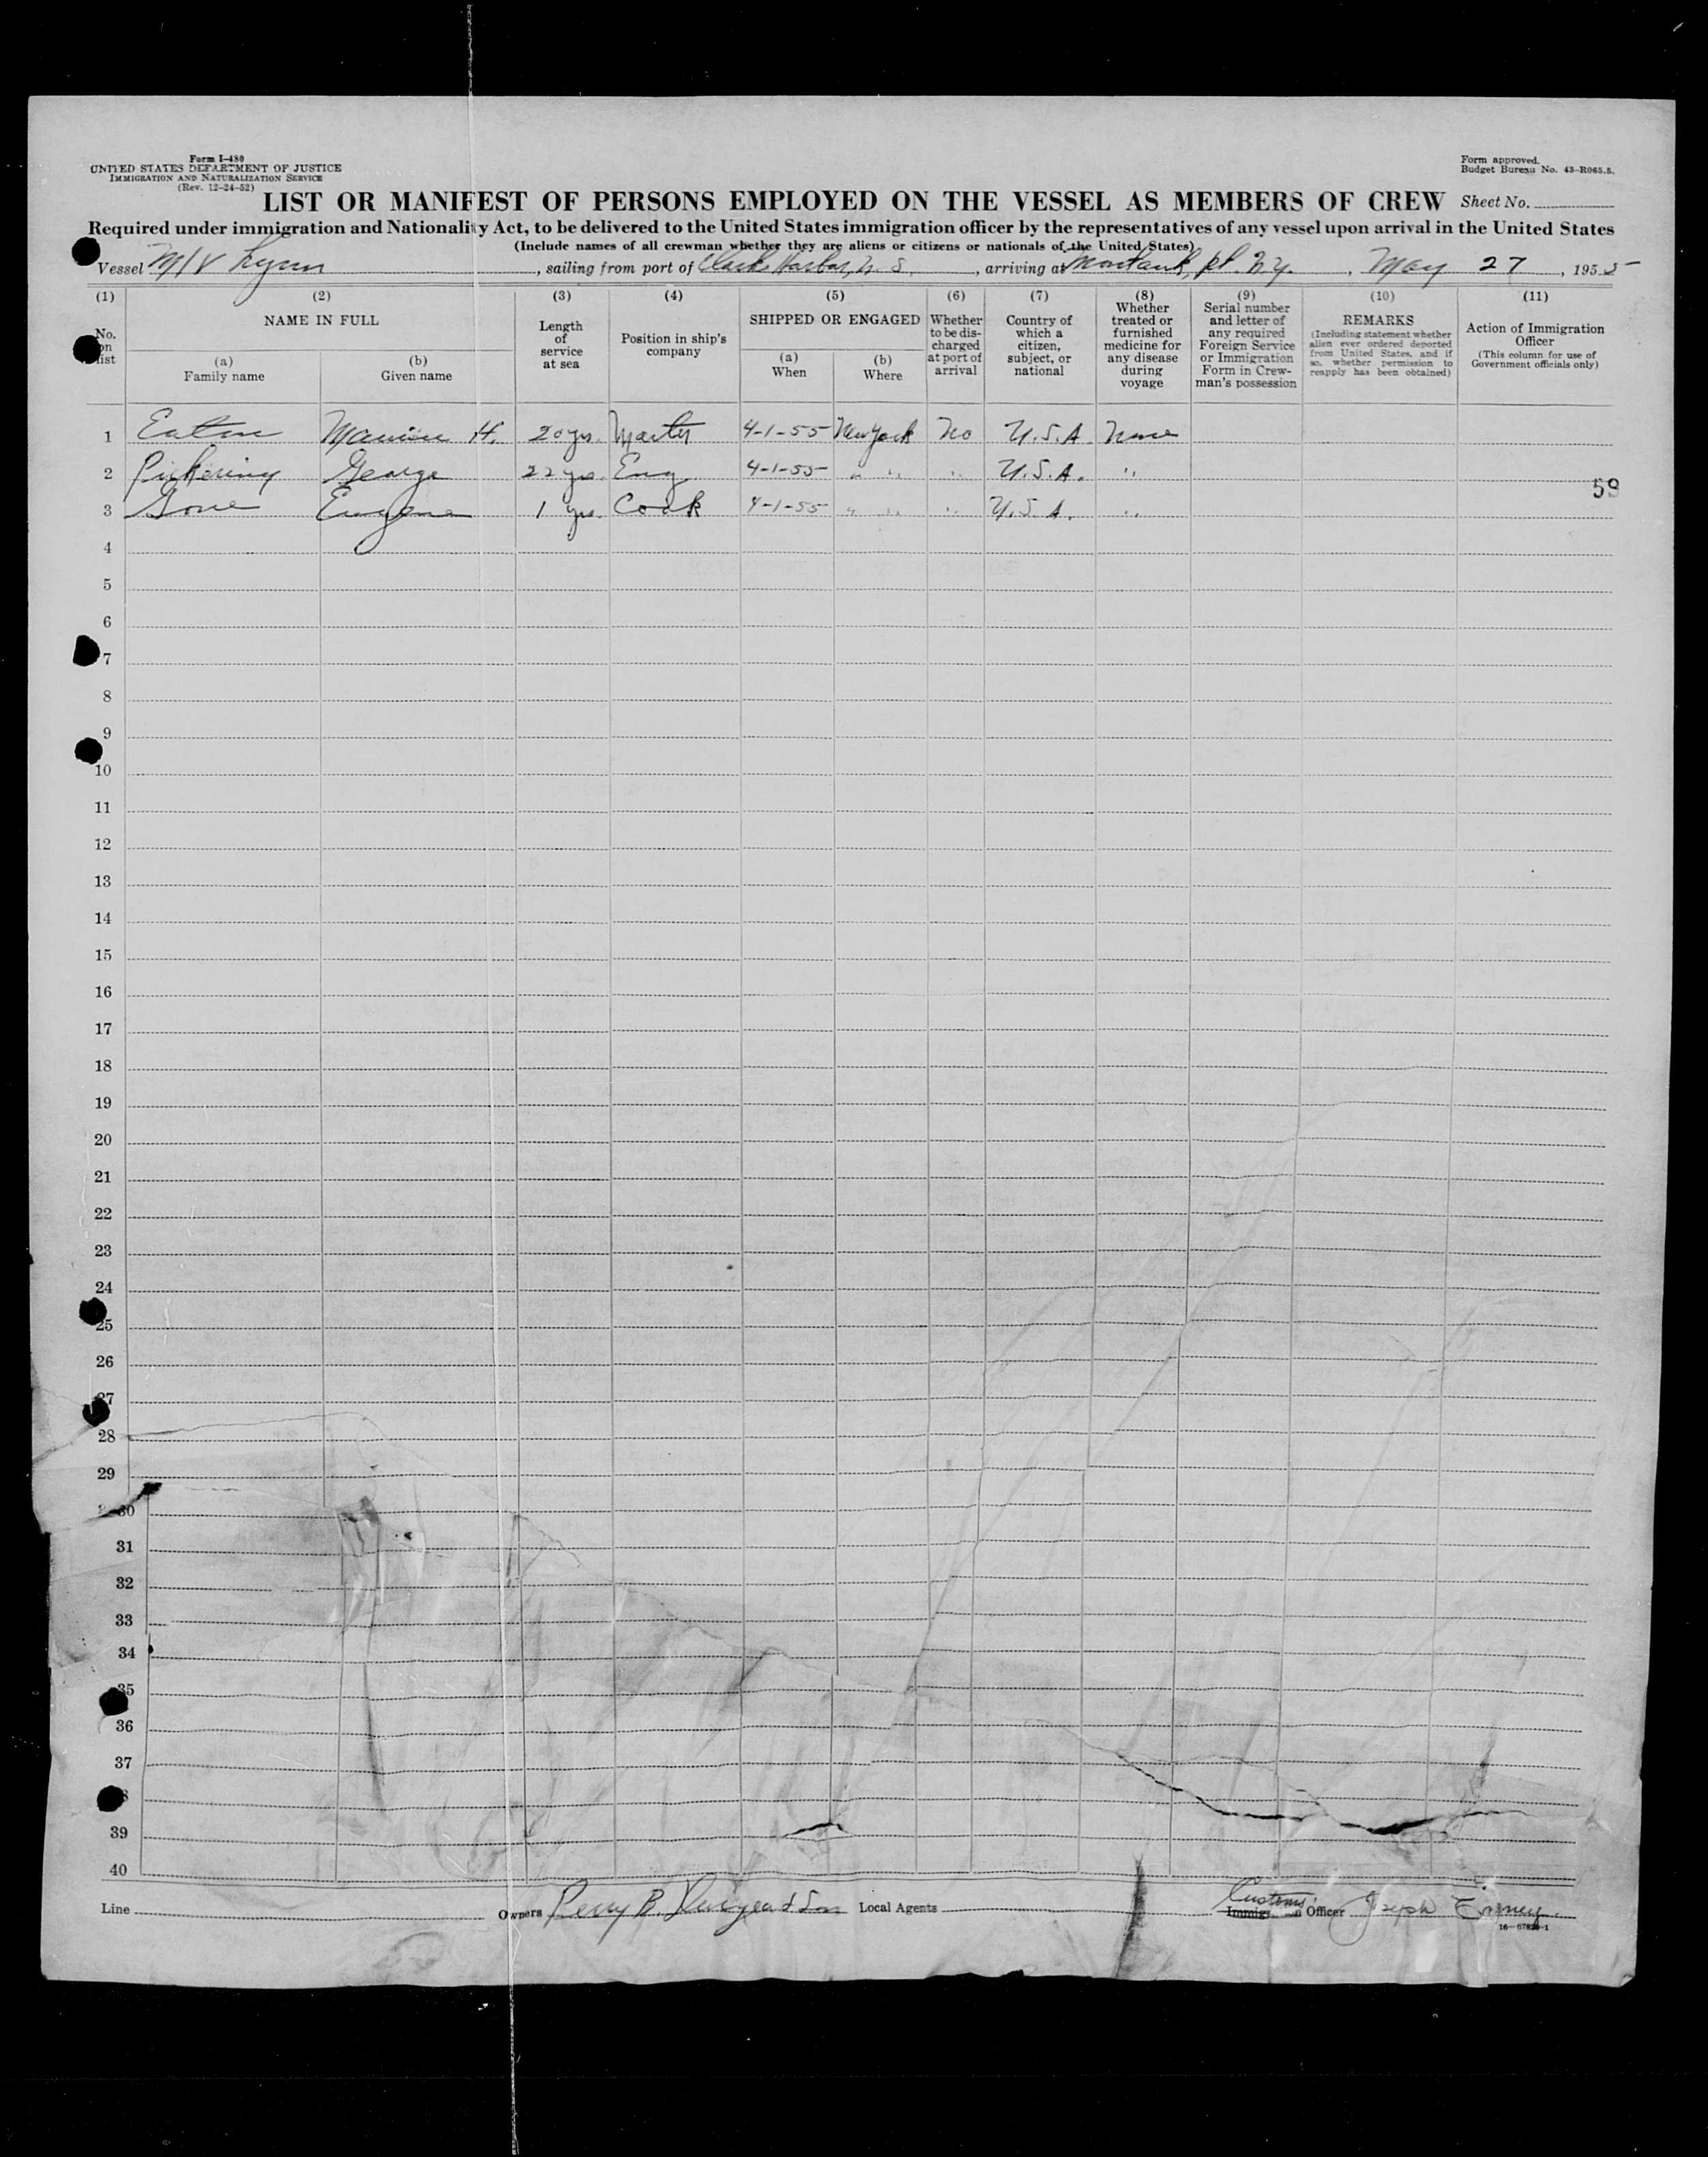 Form I-480
UNITED STATES DEPARTMENT OF JUSTICE
IMMIGRATION AND NATURALIZATION SERVICE
(Rev. 12-24-52)
Form approved.
Budget Bureau No. 43-R065.5.
LIST OR MANIFEST OF PERSONS EMPLOYED ON THE VESSEL AS MEMBERS OF CREW Sheet No.
Required under immigration and Nationality Act, to be delivered to the United States immigration officer by the representatives of any vessel upon arrival in the United States
(Include names of all crewman whether they are aliens or citizens or nationals of the United States)
Vessel M/V Lynn, sailing from port of Clarks Harbor, N. S., arriving at Montauk, pt. N.Y., May 27, 1955
(1) (2) (3) (4) (5) (6) (7) (8) (9) (10) (11)
No. on list
NAME IN FULL
(a) Family name
(b) Given name
Length of service at sea
Position in ship's company
SHIPPED OR ENGAGED
(a) When
(b) Where
Whether to be discharged at port of arrival
Country of which a citizen, subject, or national
Whether treated or furnished medicine for any disease during voyage
Serial number and letter of any required Foreign Service or Immigration Form in Crewman's possession
REMARKS
(Including statement whether alien ever ordered deported from United States, and if so, whether permission to reapply has been obtained)
Action of Immigration Officer
(This column for use of Government officials only)
1 Eaton H. 20 yrs. Master 4-1-55 New York No U.S.A. None
2 Pickering George 22 yrs. Eng 4-1-55 " " " U.S.A. "
59
3 Gove Eugene 1 yrs. Cook 4-1-55 " " " U.S.A. "
4
5
6
7
8
9
10
11
12
13
14
15
16
17
18
19
20
21
22
23
24
25
26
27
28
29
30
31
32
33
34
35
36
37
38
39
40
Line Owners Perry B. & Son Local Agents Customs Officer Joseph